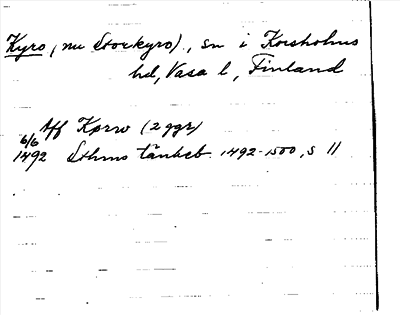 Kyro (nu Storkyro), sn i Korsholms
hd, Vasa l, Finland
Aff Kørro (2 ggr)
6/6
1492 Sthms tänkeb. 1492-1500, s 11